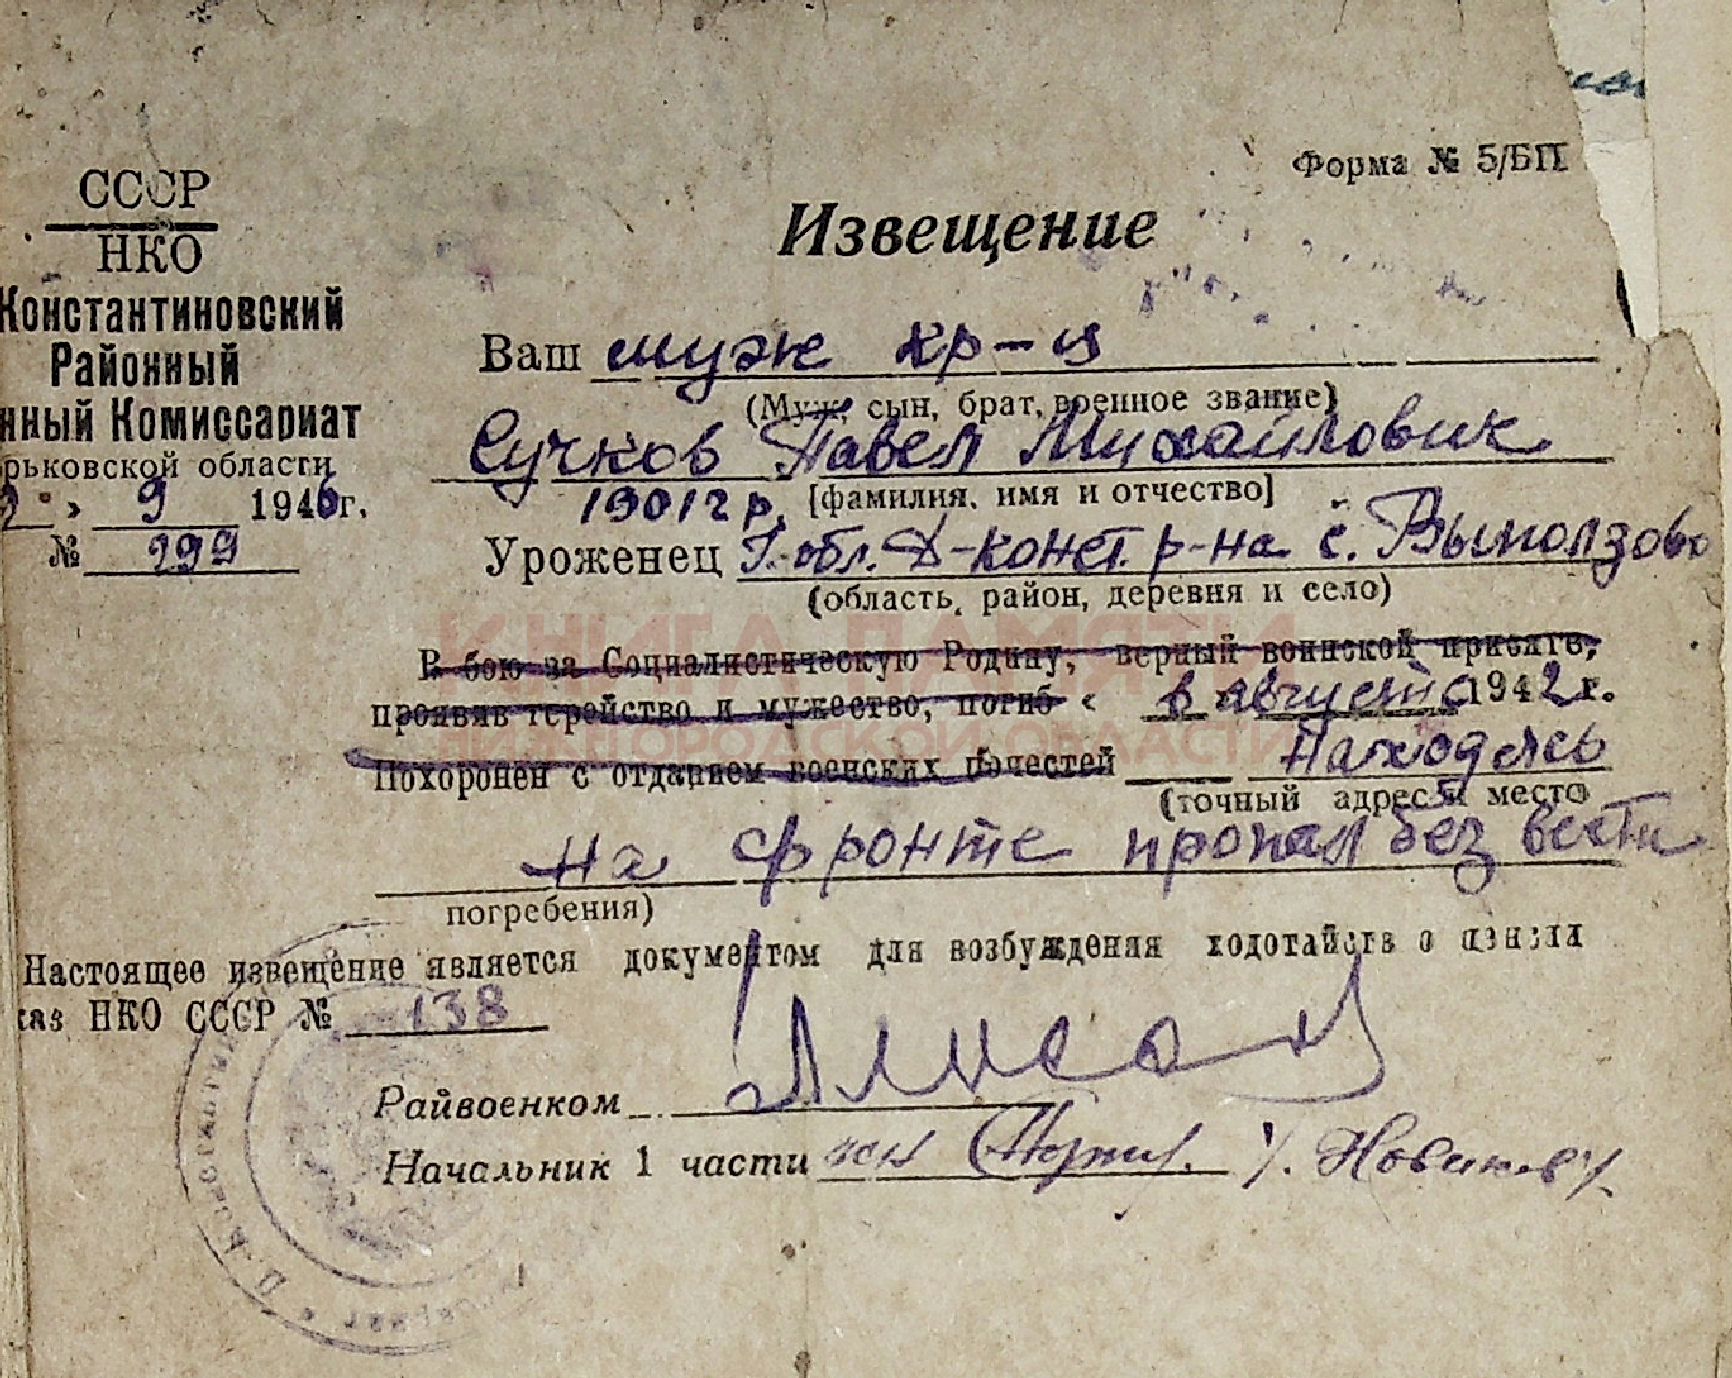 Форма № 5/БП
СССР
НКО
Константиновский
Районный
нный Комиссариат
рьковской области
2 " 9 1946г.
№ 299
Извещение
Ваш муж кр-ц
(Муж, сын, брат, военное звание)
Сучков Павел Михайлович
1901 г р. [фамилия, имя и отчество]
Уроженец Г. обл. Д-конст. р-на с. Выползово
(область, район, деревня и село)
КНИГА ПАМЯТИ
НИЖЕГОРОДСКОЙ ОБЛАСТИ
В бою за Социалистическую Родину, верный воинской присяге,
проявив геройство и мужество, погиб « в » августе 1942 г.
Похоронен с отданием воинских почестей Находясь
(точный адрес и место
на фронте пропал без вести
погребения)
Настоящее извещение является документом для возбуждения ходотайств о пензии
каз НКО СССР № 138
Райвоенком
Начальник 1 части